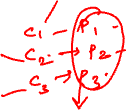 C₁ - P₁ -
C₂ → P₂ -
C₃ → P₃.